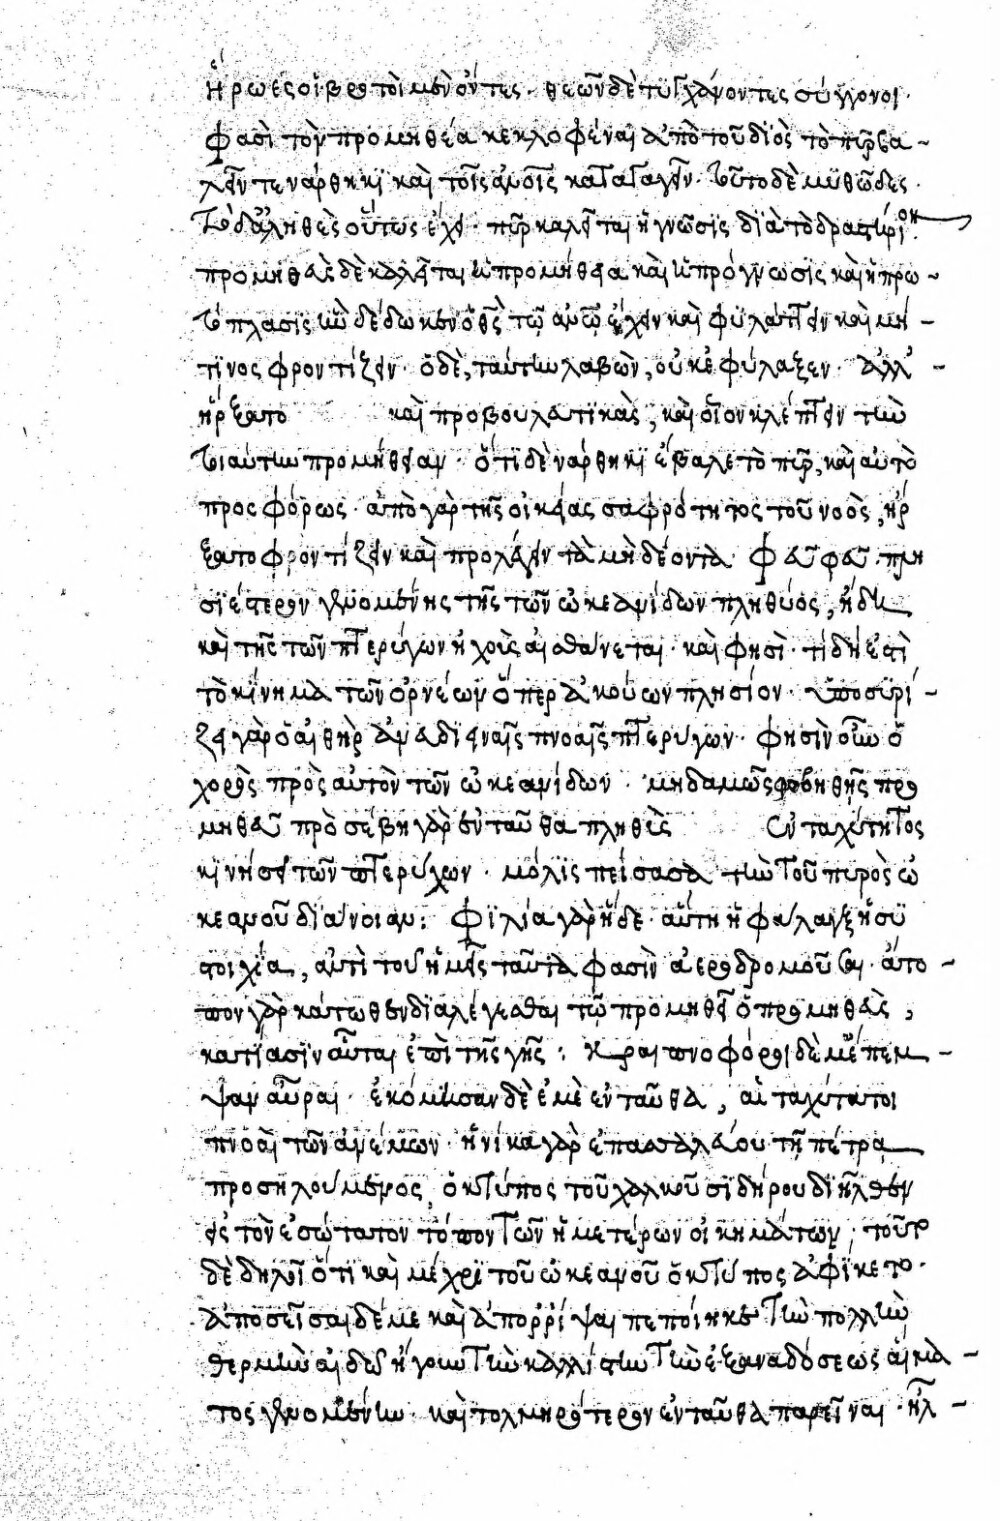 ἥρωες οἱ βροτοὶ μὲν ὄντες· θεῶν δὲ τυγχάνοντες σύγγονοι·
Φασὶ τὸν προμηθέα κεκλοφέναι ἀπὸ τοῦ διὸς τὸ πῦρ βα-
λεῖν τε νάρθηκι καὶ τοῖς ἀνοις καταγαγεῖν· τοῦτο δὲ μυθῶδες·
Τὸ δ' ἀληθὲς οὕτως ἔχει· πῦρ καλεῖται ἡ γνῶσις διὰ τὸ δραστήριον·
προμηθεὺς δὲ καλεῖται ἡ προμήθεια καὶ ἡ πρόγνωσις καὶ ἡ πρω-
τόπλασις ἣν δέδωκεν ὁ θς τῷ ἀνω ἔχειν καὶ φυλάττειν καὶ μή
τινος φροντίζειν· ὁ δὲ, ταύτην λαβὼν, οὐκ ἐφύλαξεν· ἀλλ' -
ἤρξατο καὶ προβουλευτικὰς, καὶ οἷον κλέπτειν τὴν
τοιαύτην προμήθειαν· ὅτι δὲ νάρθηκι ἔβαλε τὸ πῦρ, καὶ αὐτὸ
προσφόρως· ἀπὸ γὰρ τῆς οἰκείας σαφρότητος τοῦ νοὸς, ἤρ
ξατο φροντίζειν καὶ προλέγειν τὰ μὴ δέοντα· Φεῦ φεῦ· πλη
σιέστερον γενομένης τῆς τῶν ὠκεανίδων πληθύος, ἤδη
καὶ τῆς τῶν πτερύγων ἠχοῦς αἰσθάνεται· καὶ φησὶ· τί δή ἐστι
τὸ κίνημα τῶν ὀρνέων ὅπερ ἀκούων πλησίον· ὑποσυρί-
ζει γὰρ ὁ αἰθὴρ ἀναδιειναῖς πνοαῖς πτερύγων· φησὶν οὖν ὁ
χορὸς πρὸς αὐτὸν τῶν ὠκεανίδων· μηδαμῶς φοβηθῇς προ
μηθεῦ προσέβη γὰρ ἐνταῦθα πληθὺς σὺν ταχύτητος
κινήσει τῶν πτερύχων· μόλις πείσασα τὴν τοῦ πυρὸς ὠ
κεανοῦ διάνοιαν: Φιλία γὰρ ἥδε· αὕτη ἡ φάλαγξ ἡ συ
στοιχία, ἀντὶ τοῦ ἡμεῖς ταῦτα φασὶν ἀεροδρομοῦσαι· ἄτο-
πον γὰρ κάτωθεν διαλέγεσθαι τῷ προμηθεῖ ὁ προμηθεὺς,
κατίασιν αὗται ἐπὶ τῆς γῆς: Κραιπνοφόροι δὲ μ' ἔπεμ-
ψαν αὖραι· ἐκόμισαν δὲ ἐμὲ ἐνταῦθα, αἱ ταχύταται
πνοαὶ τῶν ἀνέμων· ἡνίκα γὰρ ἐπασσαλεύου τῇ πέτρα
προσηλούμενος, ὁ κτύπος τοῦ χαλκοῦ σιδήρου διῆλθεν
εἰς τὸν ἐσώτατον τόπον τῶν ἡμετέρων οἰκημάτων, τοῦτο
δὲ δηλοῖ ὅτι καὶ μέχρι τοῦ ὠκεανοῦ ὁ κτύπος ἀφίκετο·
ἀποσεῖσαι δέ με καὶ ἀπορρίψαι πεποίηκε τὴν πολλὴν
θερμὴν αἰδῶ ἤγουν τὴν καλλίστην τὴν ἐξαναδόσεως αἵμα-
τος γενομένην· καὶ τολμηρότερον ἐνταῦθα παρεῖναι· ἦλ-